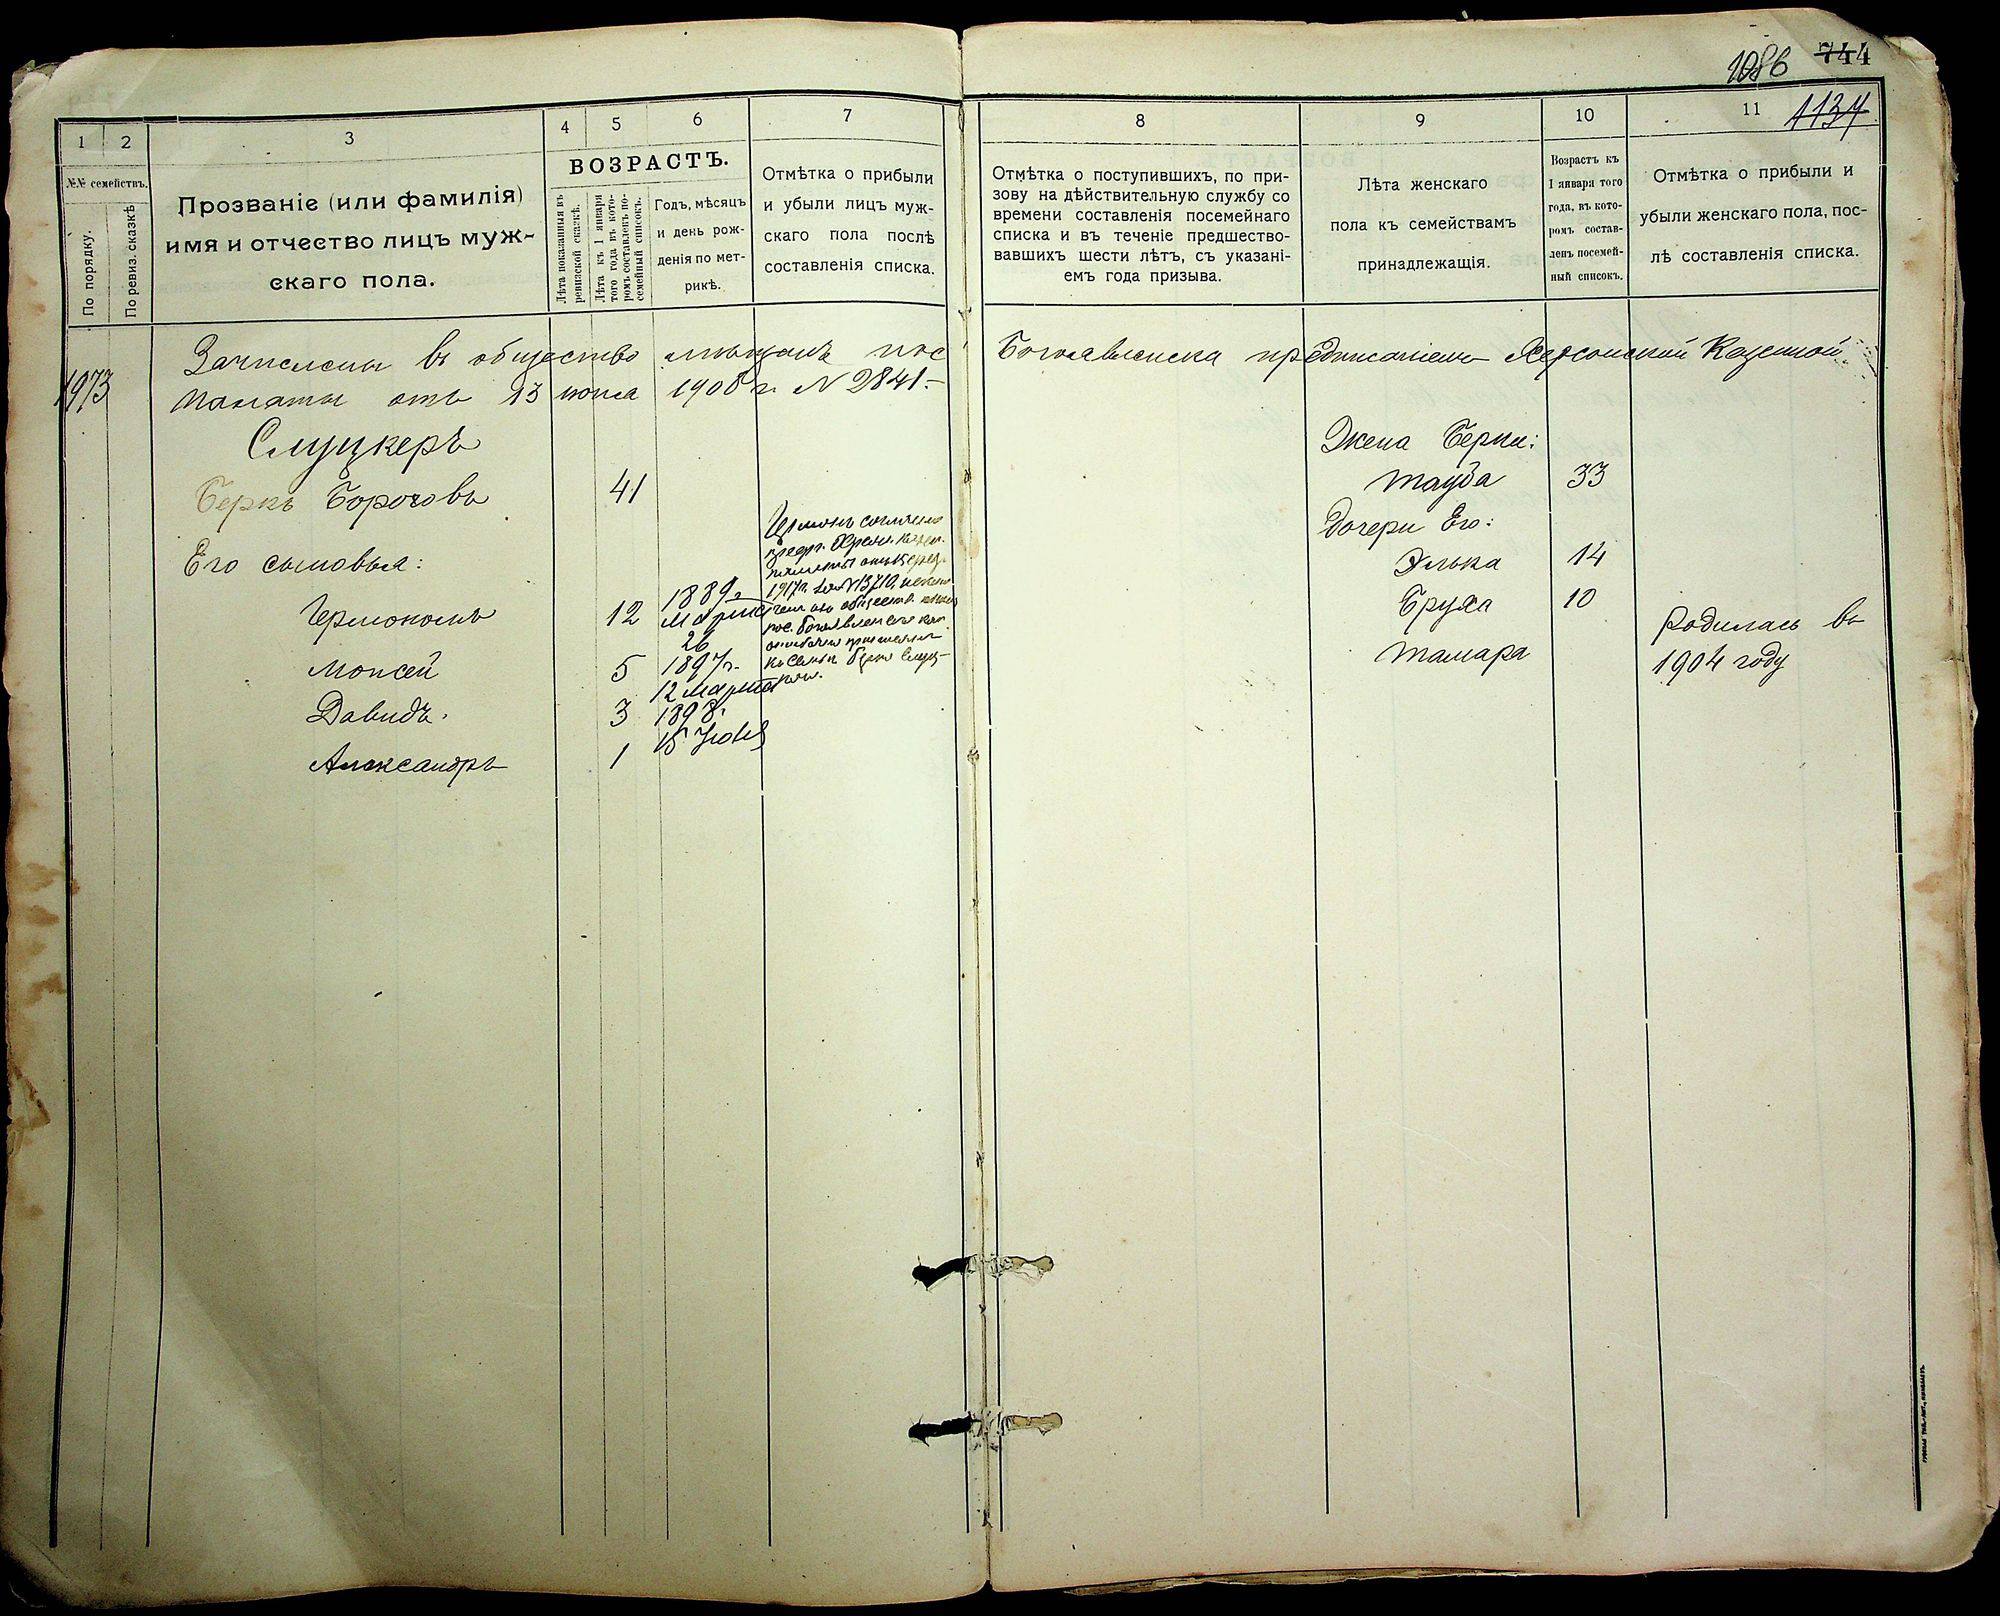 1086 744
1134
1 2 3 4 5 6 7 8 9 10 11
№№ семействъ.
По порядку.
По ревиз. сказкѣ
Прозваніе (или фамилія)
имя и отчество лицъ муж-
скаго пола.
ВОЗРАСТЪ.
Лѣта показанныя въ
ревизской сказкѣ.
Лѣта къ 1 января
того года въ кото-
ромъ составленъ по-
семейный списокъ.
Годъ, мѣсяцъ
и день рож-
денія по мет-
рикѣ.
Отмѣтка о прибыли
и убыли лицъ муж-
скаго пола послѣ
составленія списка.
Отмѣтка о поступившихъ, по при-
зову на дѣйствительную службу со
времени составленія посемейнаго
списка и въ теченіе предшество-
вавшихъ шести лѣтъ, съ указані-
емъ года призыва.
Лѣта женскаго
пола къ семействамъ
принадлежащія.
Возрастъ къ
1 января того
года, въ кото-
ромъ состав-
ленъ посемей-
ный списокъ.
Отмѣтка о прибыли и
убыли женскаго пола, пос-
лѣ составленія списка.
Зачислены въ общество мѣщанъ пос Богоявленска предписаніемъ Херсонской Казенной
1973 палаты отъ 13 1908 г. N 2841.-
Слуцкеръ
Беркъ Бороховъ 41
Его сыновья:
12 1889 г. Марта 26
Моисей 5 1897 г. 12 Марта
Давидъ. 3 1898 г. 15
Александръ 1
1917 г.
Жена Берки:
Тауба 33
Дочери Его:
Элька 14
Бруха 10
Тамара
Родилась въ
1904 году